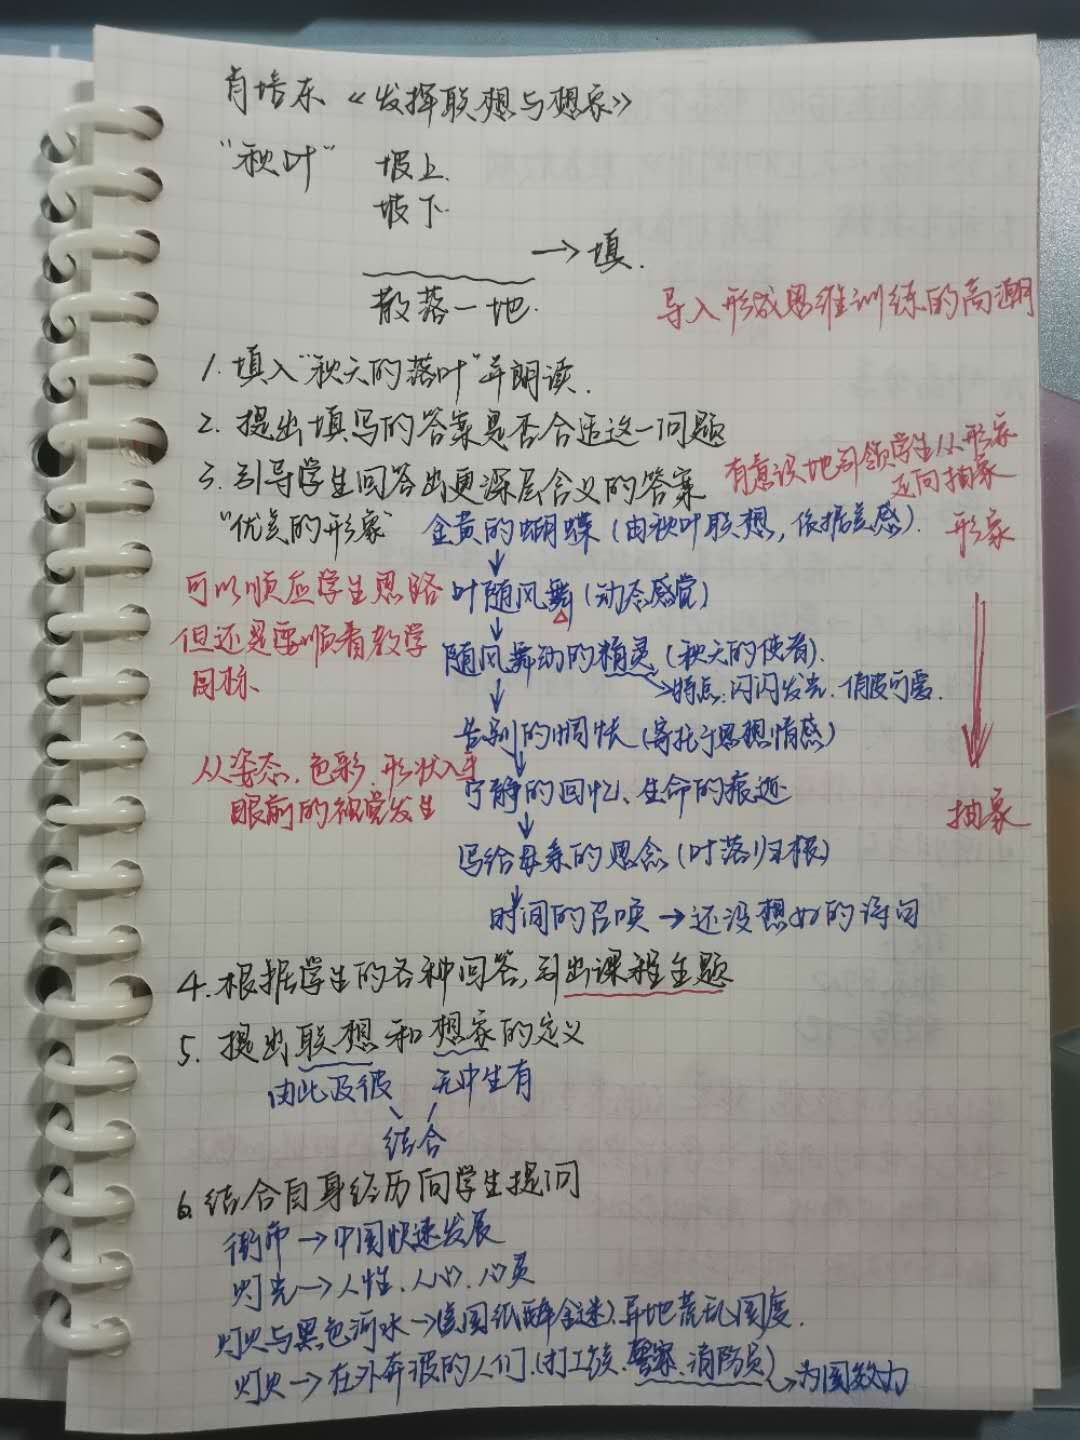 肖培东《发挥联想与想象》
"秋叶" 坡上
坡下
→填.
散落一地.
导入形成思维训练的高潮
1. 填入"秋天的落叶"并朗读.
2. 提出填写的答案是否合适这一问题
3. 引导学生回答出更深层含义的答案
有意识地引领学生从形象
迈向抽象
"优美的形象" 金黄的蝴蝶(由秋叶联想,依据美感). 形象
可以顺应学生思路 叶随风舞(动态感觉)
但还是要顺着教学
目标
随风舞动的精灵(秋天的使者).
特点:闪闪发光、俏皮可爱.
告别的惆怅(寄托了思想情感)
从姿态、色彩、形状入手
眼前的视觉发生
宁静的回忆、生命的痕迹
抽象
写给母亲的思念(叶落归根)
时间的召唤→还没想好的诗句
4. 根据学生的各种回答,引出课程主题
5. 提出联想和想象的定义
由此及彼 无中生有
结合
6. 结合自身经历向学生提问
街市→中国快速发展
灯光→人性、人心、心灵
灯火与黑色河水→(美国纸醉金迷)、异地荒乱国度.
灯火→在外奔波的人们.(打工族、警察、消防员)→为国效力